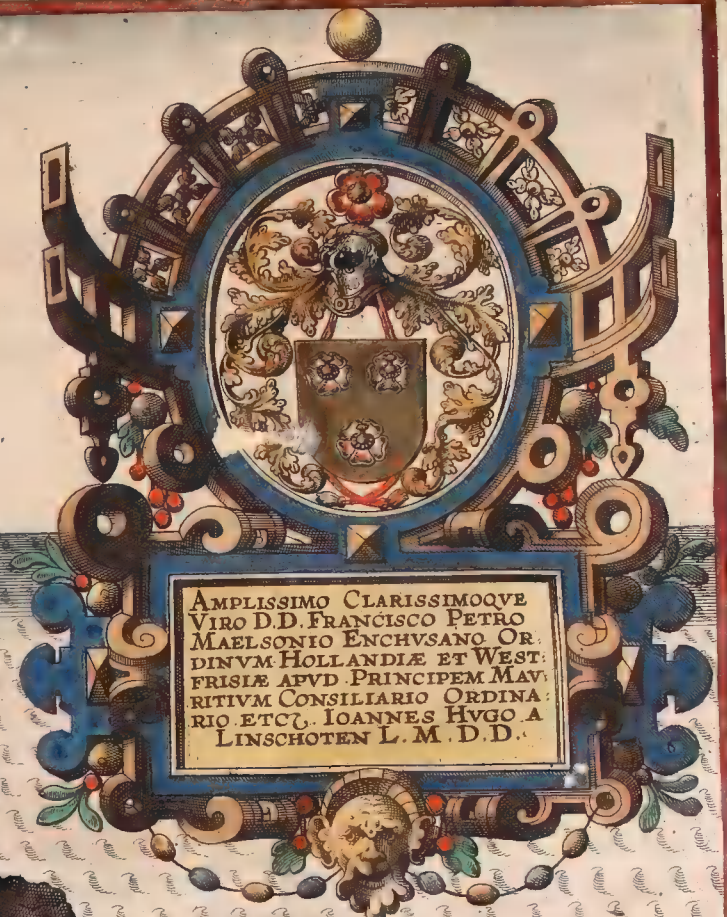 AMPLISSIMO CLARISSIMOQVE
VIRO D.D. FRANCISCO PETRO
MAELSONIO ENCHVSANO OR:
DINVM HOLLANDIÆ ET WEST:
FRISIÆ APVD PRINCIPEM MAV:
RITIVM CONSILIARIO ORDINA:
RIO ETCZ. IOANNES HVGO A
LINSCHOTEN L. M. D. D.